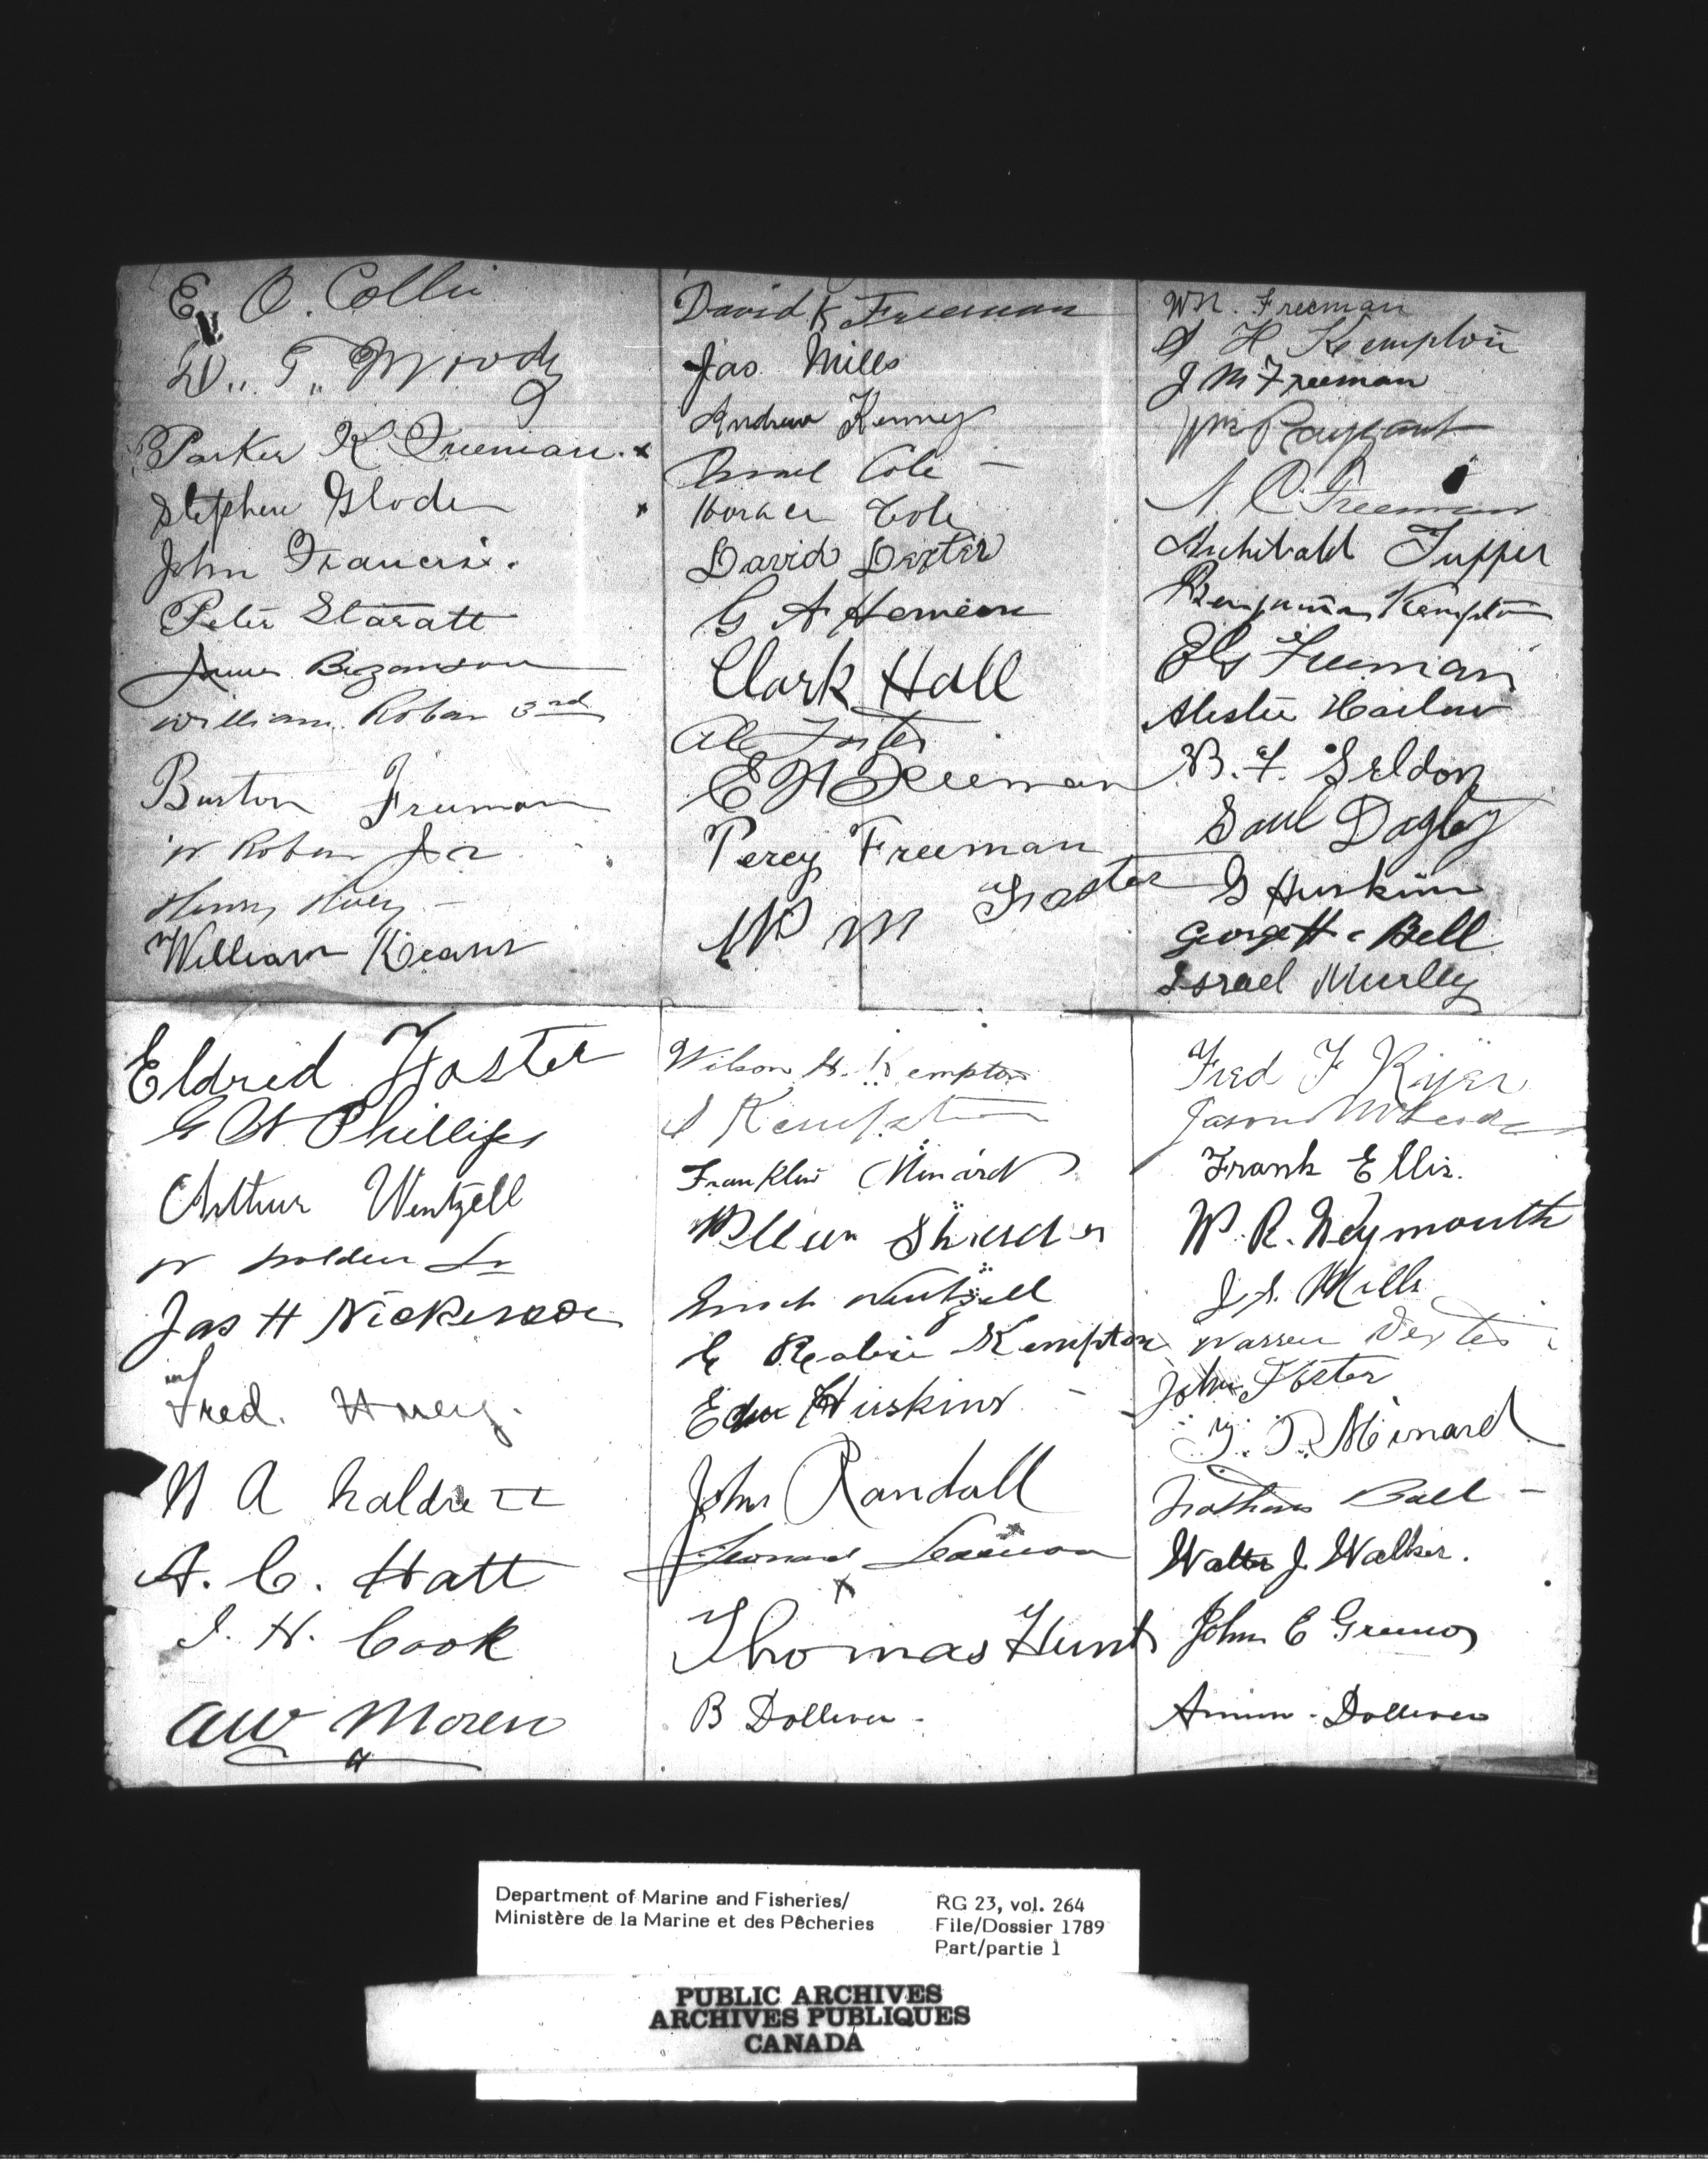 E. O. Collie
D. T. Moody
Parker K Freeman. x
Stephen Glode x
John Francis.
Peter Staratt
Bezanson
William Roban 3rd
Burton Freeman
W Roban Jr
Henry Huey -
William Keans
David K Freeman
Jas Mills
Andrew Kenney
Israel Cole -
Horace Cole
David Dexter
G A Hemeon
Clark Hall
Al Foster
E H Freeman
Percy Freeman
W M Foster
Wm. Freeman
S H Kempton
J M Freeman
Wm
N C Freeman
Archibald Tupper
Benjamin Kempton
E G Freeman
Alester Harlow
B. F. Seldon
Saul Dagley
G Huskins
George H. Bell
Israel Murley
Eldred Foster
G W Phillips
Arthur Wentzell
W Holden Sr
Jas H Nickerson
Fred. Huey.
W A
A. C. Hatt
I. H. Cook
AW Moren
Wilson H. Kempton
S Kempton
Franklin Minard
Enoch Wentzell
E Kempton
Huskins
John Randall
Leonard
x
Thomas Hunt
B Dolliver -
Fred F Kyer
Jason
Frank Ellis.
W. R. Weymouth
J. S. Mills
Warren Dexter
John Foster
T. P. Minard
Nathan Ball -
Walter J. Walker.
John C Greeno
Dolliver
Department of Marine and Fisheries/
Ministère de la Marine et des Pêcheries
RG 23, vol. 264
File/Dossier 1789
Part/partie 1
PUBLIC ARCHIVES
ARCHIVES PUBLIQUES
CANADA